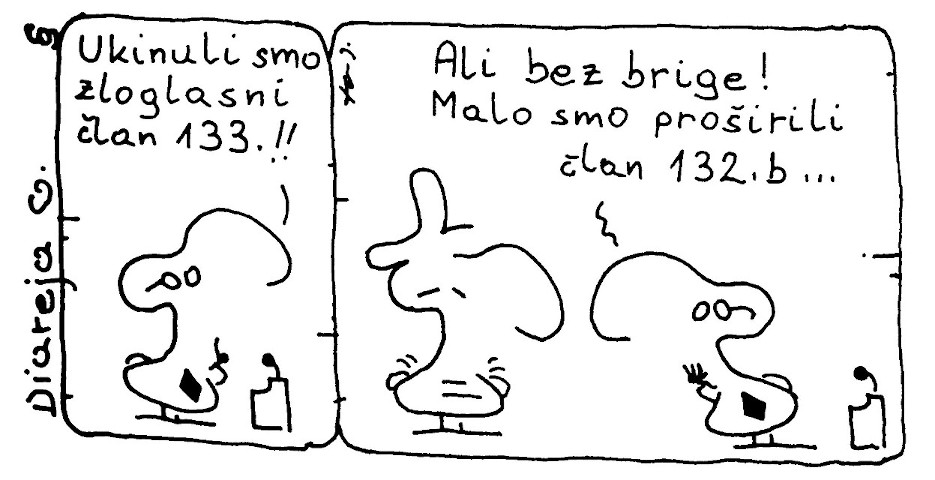 Diareja
Ukinuli smo
zloglasni
član 133.!!
Ali bez brige!
Malo smo proširili
član 132.b...